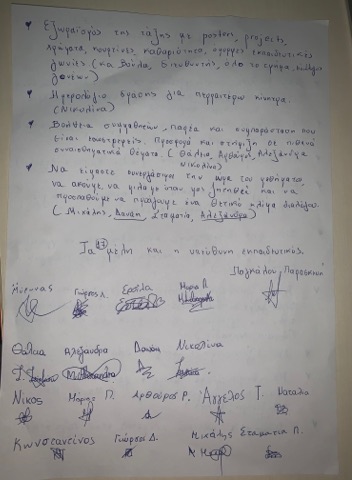 Εξωραϊσμός της τάξης με posters, projects,
χρώματα, κουρτίνες, καθαριότητα, όμορφες εκπαιδευτικές
γωνίες (κα Βούλα, διευθυντής, όλο το τμήμα, σύλλογος
γονέων)
Ημερολόγιο δράσης για περαιτέρω κίνητρα.
(Νικολίνα)
Βοήθεια συμμαθητών, παρέα και συμπαράσταση που
είναι εσωστρεφείς. Προσφορά και στήριξη σε πιθανά
συναισθηματικά θέματα. (Θάλεια, Αρθούρος, Αλεξάνδρα
Νικολίνα)
Να είμαστε συνεργάσιμοι την ώρα του μαθήματος,
να ακούμε να μιλάμε όπου μας ζητηθεί και να
προσπαθούμε να παράγουμε ένα θετικό κλίμα διαλόγου.
(Μιχάλης, Δανάη, Σταματία, Αλεξάνδρα)
Τα μέλη και η υπεύθυνη εκπαιδευτικός.
Παρασκευή
Γιώργος Λ. Ερσίλα Μαρία Π.
Θάλεια Αλεξάνδρα Δανάη Νικολίνα
Νίκος Μάριος Π. Αρθούρος Ρ. Άγγελος Τ. Ναταλία
Κωνσταντίνος Γιώργος Δ. Μιχάλης Σταματία Π.